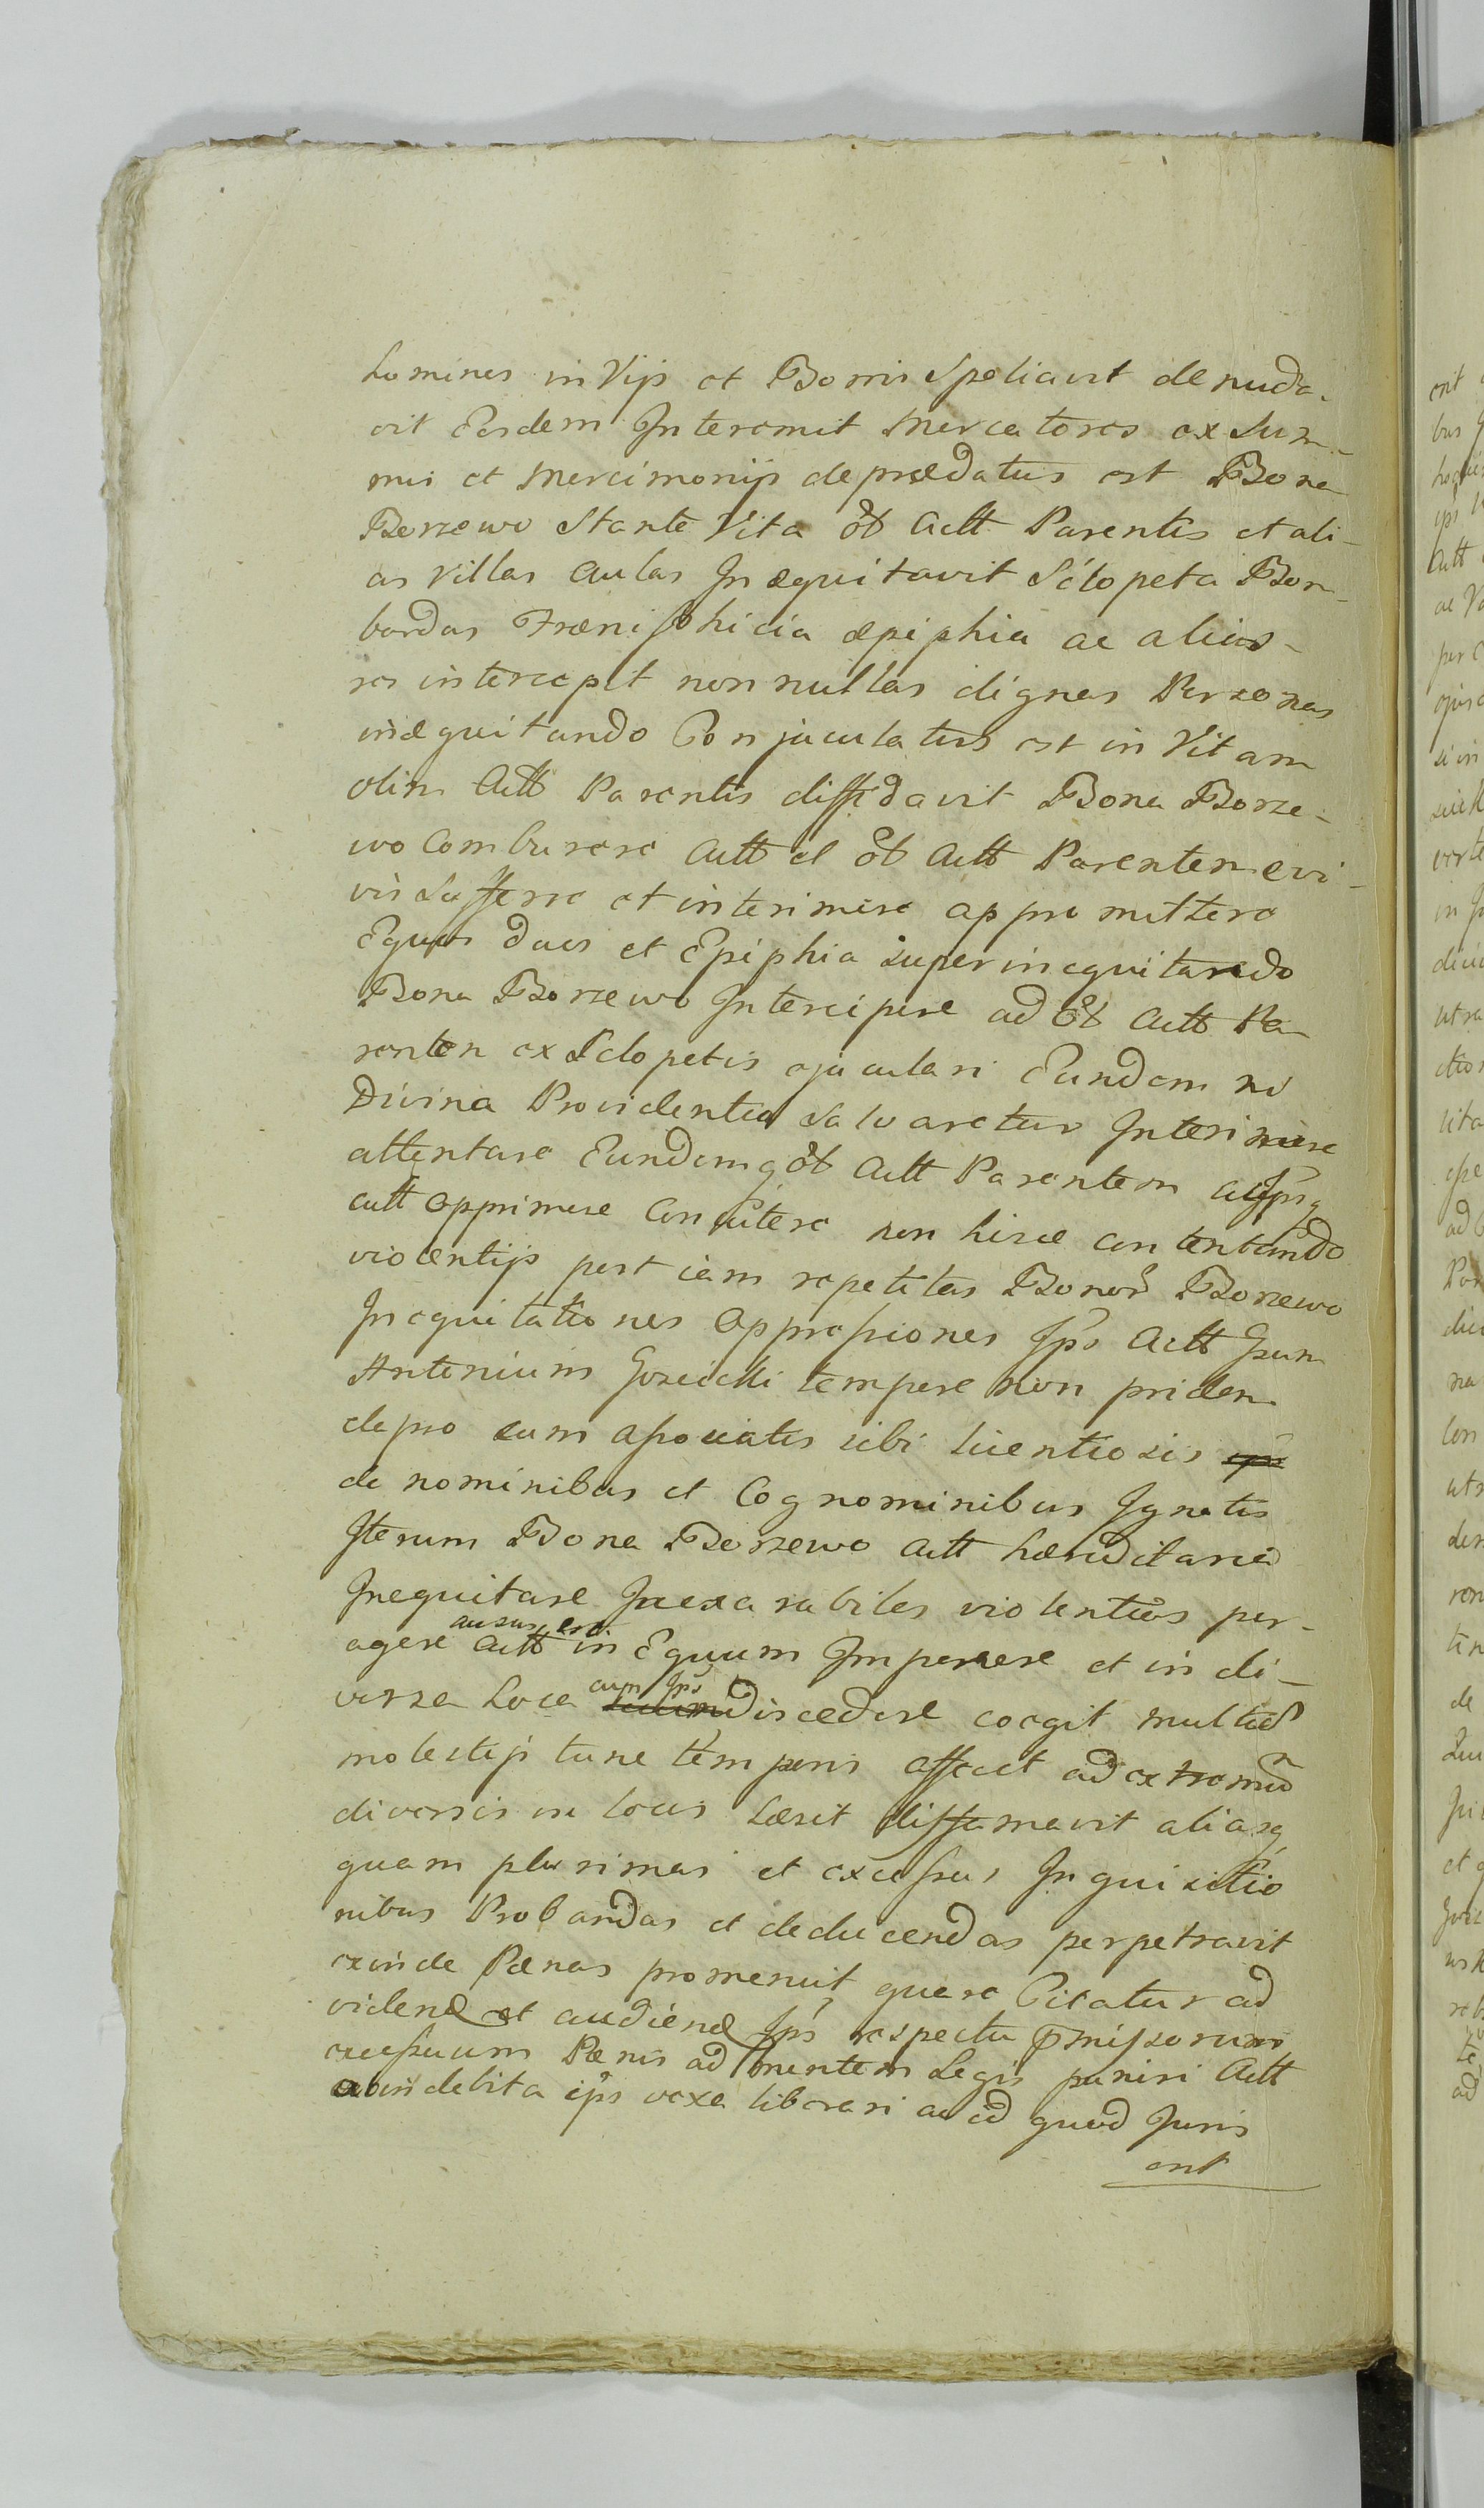 homines in Vijs et Bonis Spoliavit denuda-
vit Eosdem Interemit Mercatores ex Sum-
mis et Mercimonijs deprædatus est Bona
Borzewo Stante Vita ol Actt Parentis et ali-
as Villas Aulas Inequitavit Sclopeta Bom-
bardas Fræni ephiphia ac alias
res intercepit nonnullas dignas Personas
inæquitando Conjaculatus est in Vitam
olim Actt Parentis diffidavit Bona Borze-
wo Comburere Actt et ol Actt Parentem e vi-
vis Sufferre et interimere appromittere
Equos duos et Epiphia superinequitando
Bona Borzewo Intercipere ad ol Actt Pa-
rentem ex Sclopetis ejaculari Eundem ni
Divina Providentia Salvaretur Interimere
attentare Eundemq ol Actt Parentem
Actt opprimere non hisce contentando
violentijs post iam repetitas Bonor Borzewo
Inequitationes oppressiones Ips Actt Gsum
Antonium tempore non pridem
depso cum assosiatis sibi licentiosis
de nominibus et Cognominibus Ignotis
Iterum Bona Borzewo Actt hæreditaria
Inequitare Inexarabiles violentias per-
agere ausus est. Actt in Equum Imponere et in di-
versa Loca cum Ips discedere coegit multis
molestijs tunc temporis affecit ad extremu
diversis in locis Læsit diffamavit aliasq
quam plurimas et excessus Inquisitio
nibus Probandas et deducendas perpetravit
exinde Pænas promeruit quare Citatur ad
vidend et audiend Ips respectu pmissorum
excessuum Pænis ad mentem Legis puniri Actt
ab indebita ips vexa liberari ac id quod Juris
erit